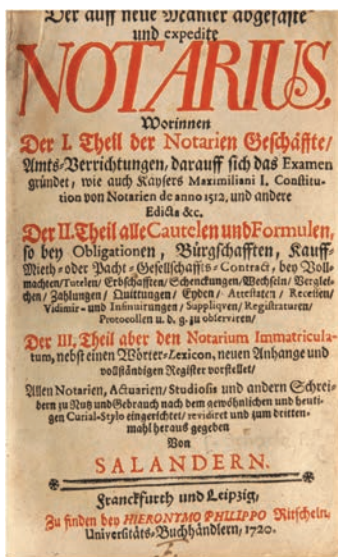 Der auff neue Manier abgefaste
und expedite
NOTARIUS,
Worinnen
Der I. Theil der Notarien Geschäffte/
Amts-Verrichtungen, darauff sich das Examen
gründet, wie auch Kaysers Maximiliani I. Constitu-
tion von Notarien de anno 1512. und andere
Edicta &c.
Der II. Theil alle Cautelen und Formulen,
so bey Obligationen, Bürgschafften, Kauff-
Mieth- oder Pacht- Gesellschaffts- Contract, bey Voll-
machten/ Tutelen/ Erbschafften/ Schenckungen/ Wechseln/ Verglei-
chen/ Zahlungen/ Quittungen/ Eyden/ Attestaten/ Recessen/
Vidimir- und Insinuirungen/ Suppliqven/ Registraturen/
Protocollen u. d. g. zu obierviren/
Der III. Theil aber den Notarium Immatricula-
tum, nebst einen Wörter-Lexicon, neuen Anhange und
vollständigen Register vorstellet/
Allen Notarien, Actuarien/ Studiosis und andern Schrei-
dern zu Nutz und Gebrauch nach dem gewöhnlichen und heuti-
gen Curial-Stylo eingerichtet/ revidiret und zum dritten-
mahl heraus gegeben
Von
SALANDERN.
Franckfurth und Leipzig,
Zu finden bey HIERONYMO PHILIPPO Ritscheln,
Universitäts-Buchhändlern, 1720.